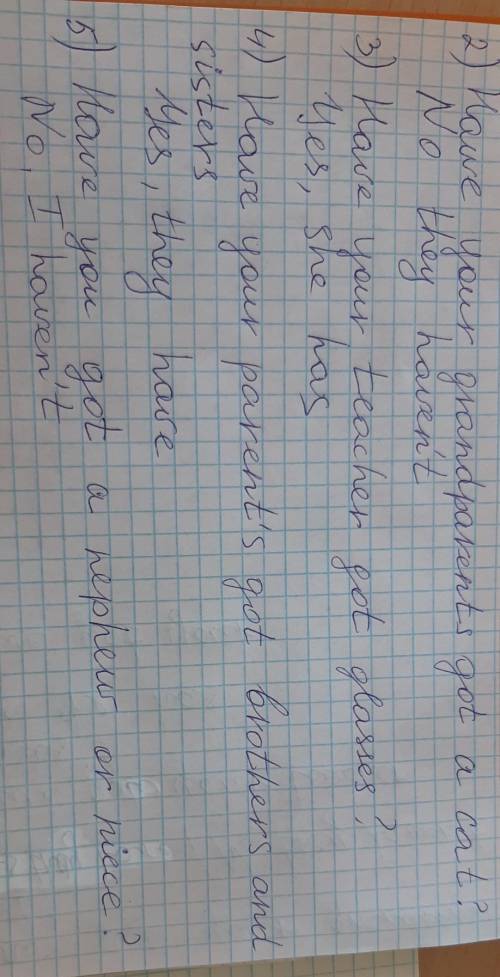 2) Have your grandparents got a cat?
No they haven't
3) Have your teacher got glasses?
Yes, she has
4) Have your parent's got brothers and
sisters
Yes, they have
5) Have you got a nephew or niece?
No, I haven't